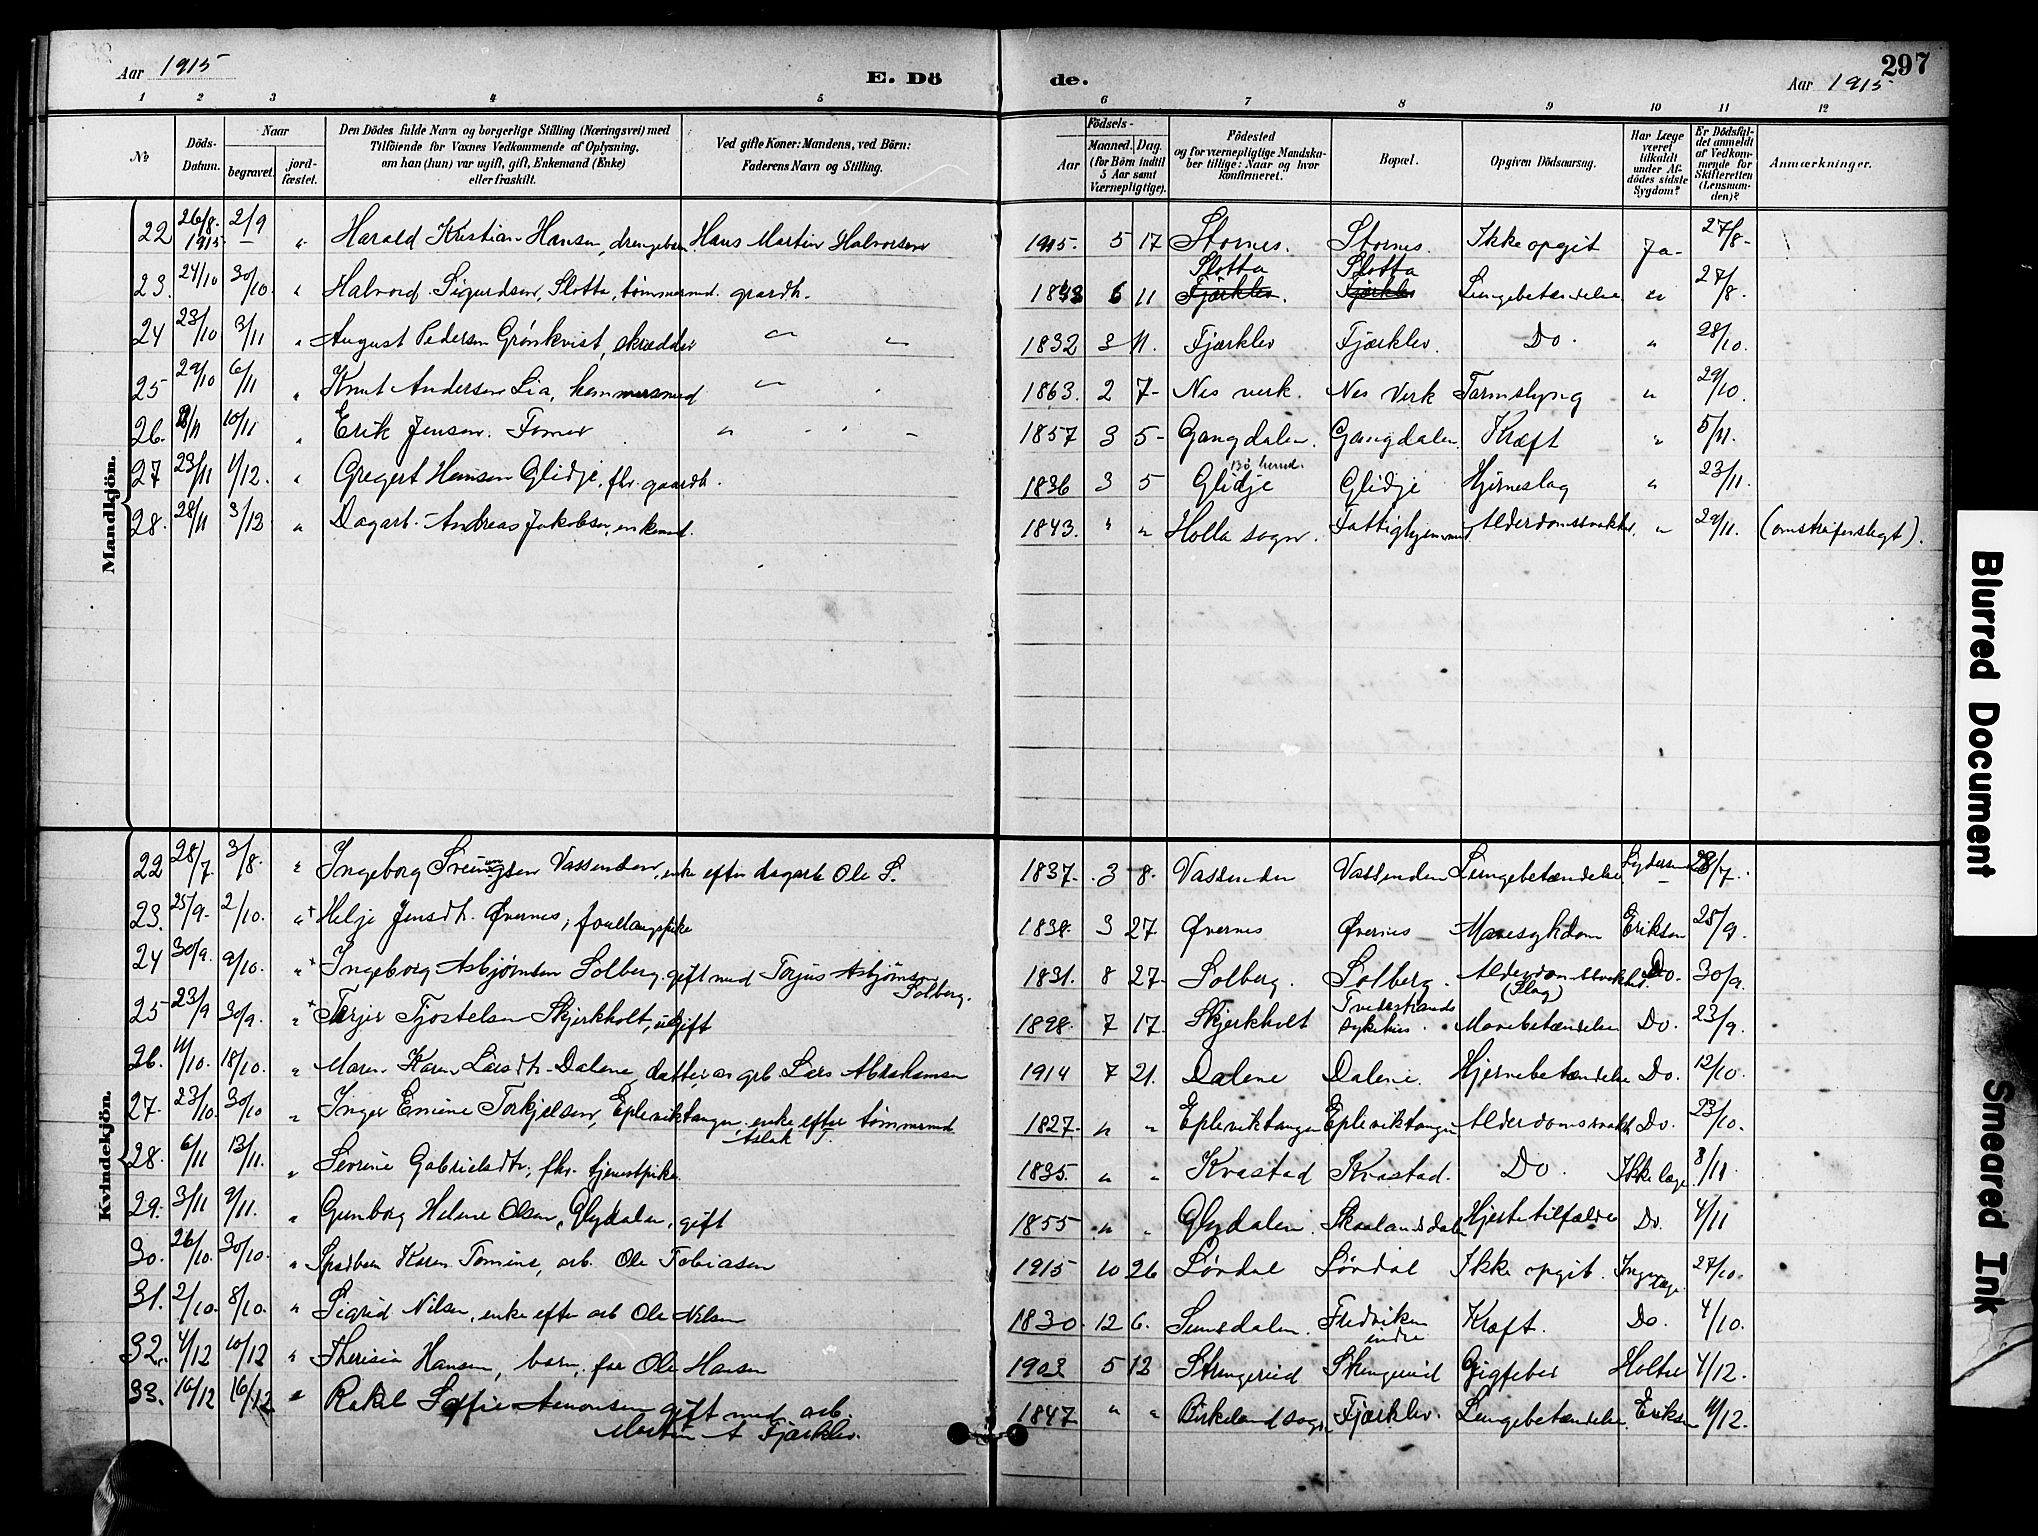 297
Aar 1915
E. Dö
de.
Aar 1915
1 2 3 4 5 6 7 8 9 10 11 12
No
Döds-Datum.
Naar
begravet.
jord-fæstet.
Den Dödes fulde Navn og borgerlige Stilling (Næringsvei) med
Tilföiende for Voxnes Vedkommende af Oplysning,
om han (hun) var ugift, gift, Enkemand (Enke)
eller fraskilt.
Ved gifte Koner: Mandens, ved Börn:
Faderens Navn og Stilling.
Födsels-
Aar
Maaned. Dag.
(for Börn indtil
5 Aar samt
Værnepligtige).
Födested
og for værnepligtige Mandska-
ber tillige: Naar og hvor
konfirmeret.
Bopæl.
Opgiven Dödsaarsag.
Har Læge
været
tilkaldt
under Af-
dödes sidste
Sygdom?
Er Dödsfal-
det anmeldt
af Vedkom-
mende for
Skifteretten
(Lensman-
den)?
Anmærkninger.
Mandkjön.
22 26/8 1915 2/9 " Harald Kristian Hansen, drengebarn Hans Martin Halvorsen 1915. 5 17 Stornes. Stornes. Ikke opgit Ja- 27/8-
23. 24/10 30/10 " Halvord Sigurdsen, Slotta, tømmermd. gaardb. 1848 6 11 Slotta Fjærklev. Slotta Fjærklev Lungebetændelse " 27/8-
24 23/10 3/11 " August Pedersen Grønkvist, skrædder " " 1832 3 11. Fjærklev Fjærklev. Do. " 28/10.
25 29/10 6/11 " Knut Andersen Lia, hammersmed " 1863. 2 7- Nes verk. Nes Verk Tarmslyng " 29/10.
26. 10/11 " Erik Jensen. " " 1857 3 5- Gangdalen. Gangdalen. Kræft " 5/11.
27 23/11 1/12. " Gregert Hansen Glidje, fhv. gaardb. 1836 3 5 Glidje Glidje Hjerneslag " 23/11.
28. 28/11 3/12 " Dagarb. Andreas Jakobsen, enkemd. 1843. " " Holla sogn. Fattighjemmet Alderdomssvakhet. " 29/11.
Kvindekjön.
22 28/7 3/8. " Ingeborg Vassenden, enke efter dagarb Ole S. 1837. 3 8. Vassenden Vassenden Lungebetændelse 28/7.
23. 25/9. 2/10. " Helje Jensdtr. Øvernes, 1838. 3 27 Øvernes Øvernes Mavesykdom Eriksen 25/9.
24 30/9. 9/10. " Ingeborg Asbjørnsen Solberg, gift med Torjus Asbjørnsen Solberg. 1831. 8 27. Solberg. Solberg. Alderdomssvakhet (Slag) Do. 30/9.
25 23/9 30/9. " Tjostelsen Skjerkholt, 1898. 7 17. Skjerkholt Tvedestrands sykehus. Mavebetændelse Do. 23/9.
26. 11/10. 18/10. " Maren Karen Larsdtr. Dalene, datter av arb Lars Abrahamsen 1914 7 21. Dalene Dalene. Hjernebetændelse Do. 12/10.
27. 23/10. 30/10 " Inger Emine Torkjelsen, Epleviktangen, enke efter tømmermd Aslak T. 1827. " " Epleviktangen Epleviktangen Alderdomssvakh. Do. 23/10.
28. 6/11 13/11. " Severine Gabrielsdtr, fhv. tjenestpike 1835. " " Kvastad Kvastad. Do. Ikke læge 8/11
29. 3/11 9/11. " Gunborg Helene Olsen, Glydalen, gift 1855 " " Glydalen. Hjertetilfælde Do. 4/11
30. 26/10. 30/10. " Spædbarn Karen Tomine, arb. Ole Tobiasen 1915 10 26 Lørdal Lørdal Ikke opgit. Ingen læge 27/10.
31. 2/10. 8/10. " Sigrid Nilsen, enke efter arb Ole Nilsen 1830. 12 6. Sunsdalen. Fredviken indre Kræft. Do. 4/10.
32. 4/12 10/12 " Theresia Hansen, barn, far Ole Hansen 1903 5 12 Gigtfeber Holter 4/12.
33. 10/12 16/12 " Rakel Soffie Amonsen gift med arb. Martin A Fjærklev. 1847 " " Birkeland sogn Fjærklev. Lungebetændelse. Eriksen 11/12.
Blurred Document
Smeared Ink